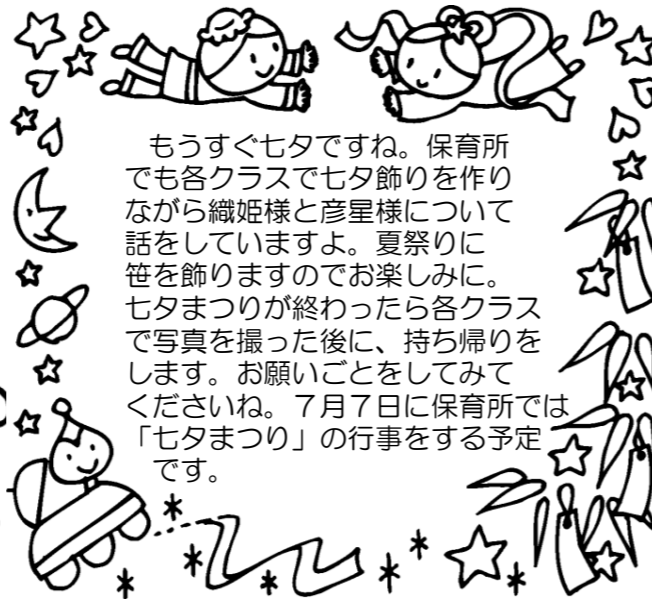 もうすぐ七夕ですね。保育所
でも各クラスで七夕飾りを作り
ながら織姫様と彦星様について
話をしていますよ。夏祭りに
笹を飾りますのでお楽しみに。
七夕まつりが終わったら各クラス
で写真を撮った後に、持ち帰りを
します。お願いごとをしてみて
くださいね。７月７日に保育所では
「七夕まつり」の行事をする予定
です。